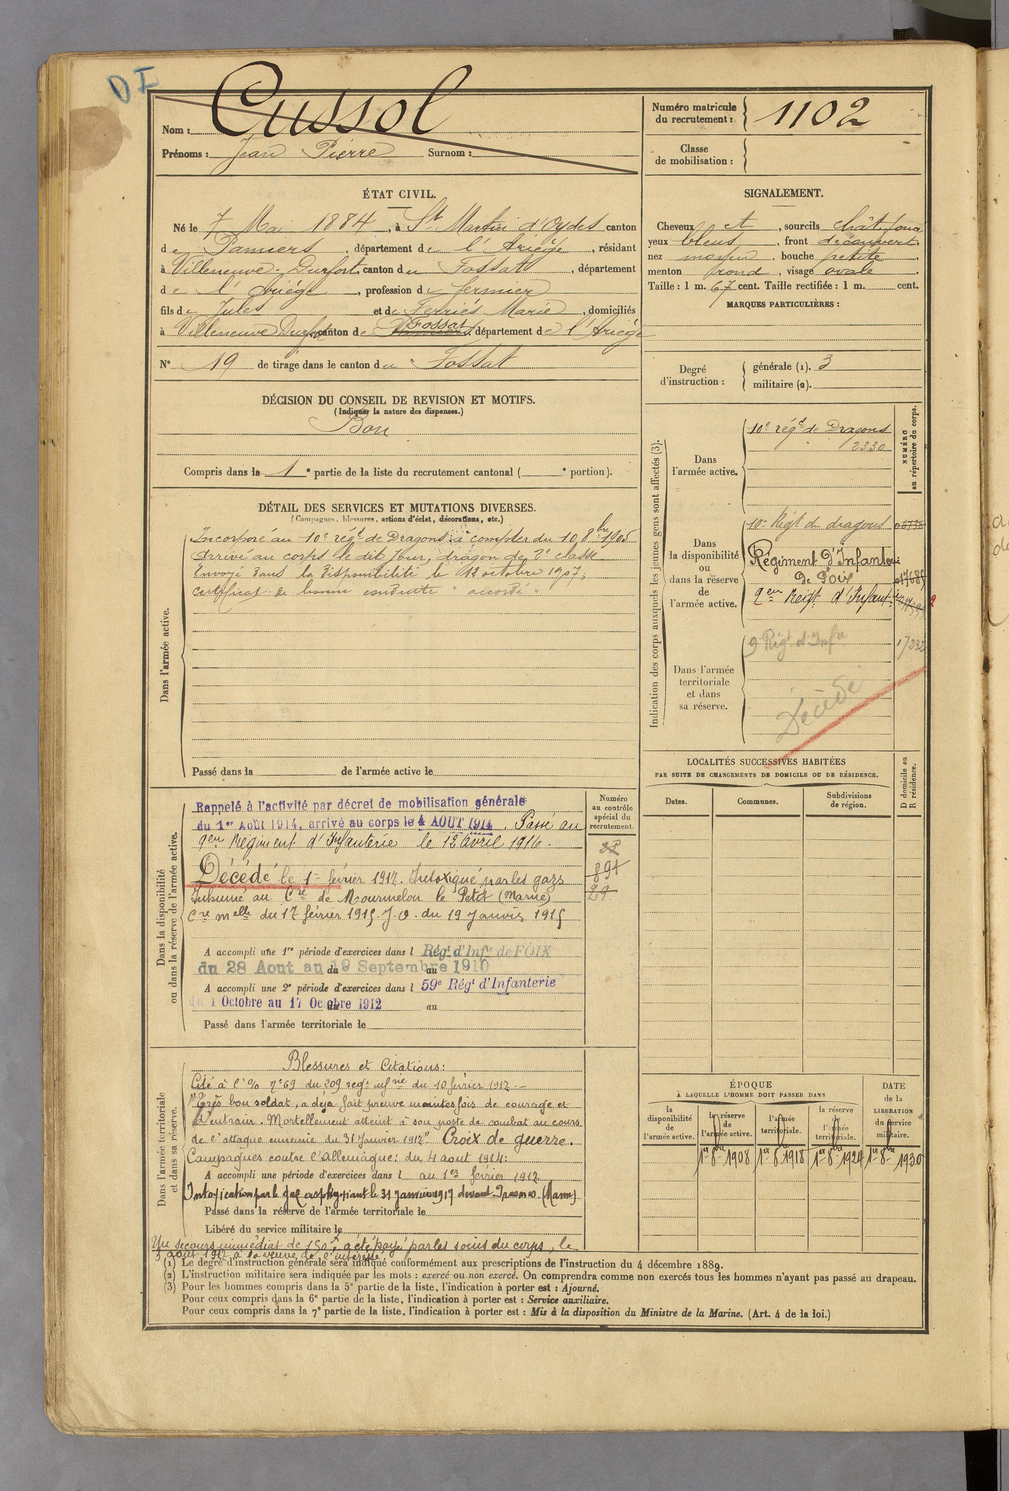 DI
Nom : Cussol
Prénoms : Jean Pierre Surnom :
Numéro matricule du recrutement : 1102
Classe de mobilisation :
ÉTAT CIVIL.
Né le 7 Mai 1884, à St Martin d'Oydes canton
de Pamiers, département de l'Ariège, résidant
à Villeneuve-Durfort, canton du Fossat, département
de l'Ariège, profession de fermier
fils de Jules et de Ferriés Marie, domiciliés
à Villeneuve Durfort canton de Fossat, département de l'Ariège
N° 19 de tirage dans le canton du Fossat
SIGNALEMENT.
Cheveux et, sourcils chât. fonc
yeux bleus, front découvert,
nez moyen, bouche petite,
menton rond, visage ovale
Taille : 1 m. 67 cent. Taille rectifiée : 1 m. cent.
MARQUES PARTICULIÈRES :
Degré d'instruction :
générale (1). 3
militaire (2).
DÉCISION DU CONSEIL DE REVISION ET MOTIFS.
(Indiquer la nature des dispenses.)
Bon
Compris dans la 1e partie de la liste du recrutement cantonal (e portion).
DÉTAIL DES SERVICES ET MUTATIONS DIVERSES.
(Campagnes, blessures, actions d'éclat, décorations, etc.)
Dans l'armée active.
Incorporé au 10e régt de Dragons à compter du 10 8bre 1905
arrivé au corps le dit jour, dragon de 2e classe
Envoyé dans la disponibilité le 12 octobre 1907;
certificat de bonne conduite "accordé".
Passé dans la de l'armée active le
Indication des corps auxquels les jeunes gens sont affectés (3).
NUMÉRO au répertoire du corps.
Dans l'armée active.
10e régt de Dragons
2330
Dans la disponibilité ou dans la réserve de l'armée active.
10e Régt de dragons
Régiment d'Infanterie
de Foix
9eme Régt d'Infant.
Dans l'armée territoriale et dans sa réserve.
9 Régt d'Infie
Décédé
LOCALITÉS SUCCESSIVES HABITÉES
PAR SUITE DE CHANGEMENTS DE DOMICILE OU DE RÉSIDENCE.
Dates. Communes. Subdivisions de région.
D domicile ou R résidence.
Dans la disponibilité ou dans la réserve de l'armée active.
Numéro au contrôle spécial du recrutement.
Rappelé à l'activité par décret de mobilisation générale
du 1er Août 1914, arrivé au corps le 4 AOUT 1914. Passé au
9eme Régiment d'Infanterie le 12 avril 1916.
Décédé le 1er février 1917. Intoxiqué par les gaz
Inhumé au Cre de Mourmelon le Petit (Marne)
Cre melle du 17 février 1915. J.O. du 19 Janvier 1915
891
A accompli une 1re période d'exercices dans l Régt d'Infie de FOIX
du 28 Aout au 19 Septembre 1910
A accompli une 2e période d'exercices dans l 59e Régt d'Infanterie
du 1 Octobre au 17 Octobre 1912 au
Passé dans l'armée territoriale le
Dans l'armée territoriale et dans sa réserve.
Blessures et Citations :
Cité à l'% n° 69 du 209 régt infrie du 10 février 1917.
"Très bon soldat, a déjà fait preuve maintes fois de courage et
d'entrain. Mortellement atteint à son poste de combat au cours
de l'attaque ennemie du 31 Janvier 1917" Croix de guerre.
Campagnes contre l'Allemagne : du 4 aout 1914 :
A accompli une période d'exercices dans l au 1er février 1917
Intoxication par le gaz asphyxiant le 31 janvier 1917 devant Prosnes (Marne)
Passé dans la réserve de l'armée territoriale le
Libéré du service militaire le
Un secours immédiat de 150f a été payé par les soins du corps, le
3 août 1917 à la veuve de l'intéressé.
ÉPOQUE
À LAQUELLE L'HOMME DOIT PASSER DANS
DATE de la LIBERATION du service militaire.
la disponibilité de l'armée active.
la réserve de l'armée active.
l'armée territoriale.
la réserve de l'armée territoriale.
1er 8bre 1908 1er 8bre 1918 1er 8bre 1924 1er 8bre 1930
(1) Le degré d'instruction générale sera indiqué conformément aux prescriptions de l'instruction du 4 décembre 1889.
(2) L'instruction militaire sera indiquée par les mots : exercé ou non exercé. On comprendra comme non exercés tous les hommes n'ayant pas passé au drapeau.
(3) Pour les hommes compris dans la 5e partie de la liste, l'indication à porter est : Ajourné.
Pour ceux compris dans la 6e partie de la liste, l'indication à porter est : Service auxiliaire.
Pour ceux compris dans la 7e partie de la liste, l'indication à porter est : Mis à la disposition du Ministre de la Marine. (Art. 4 de la loi.)